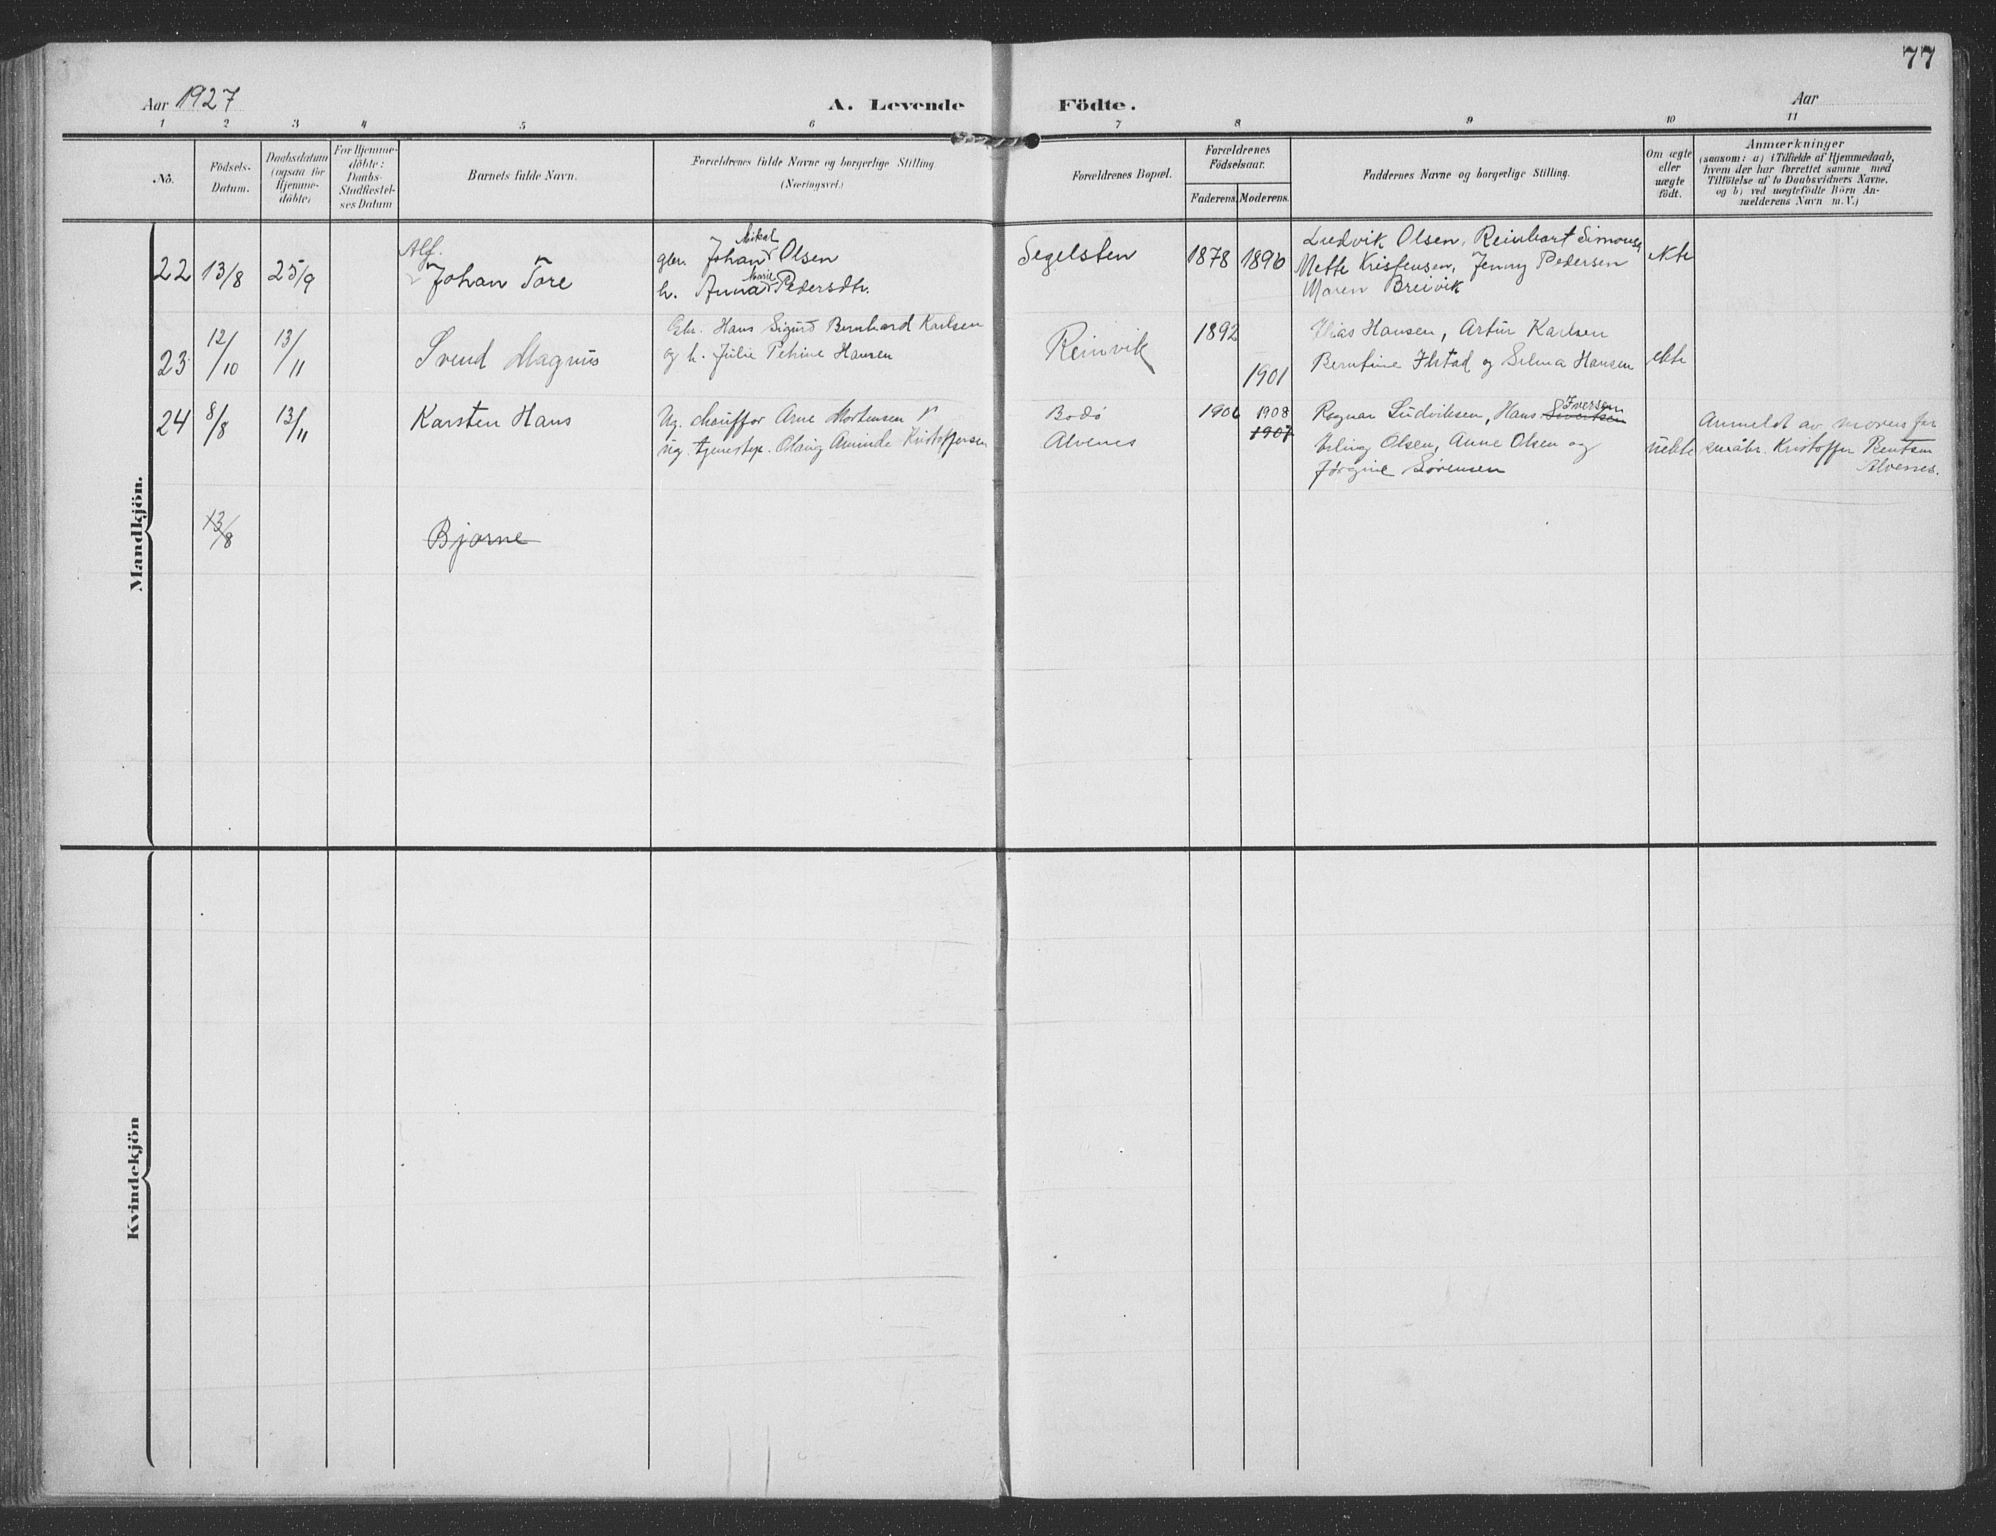 77
Aar 1927
A. Levende Födte.
Aar
1 2 3 4 5 6 7 8 9 10 11
No.
Födsels-
Datum.
Daabsdatum
(ogsaa for
Hjemme-
döbte)
For Hjemme-
döbte:
Daabs-
Stadfæstel-
ses Datum
Barnets fulde Navn.
Forældrenes fulde Navne og borgerlige Stilling
(Næringsvei.)
Forældrenes Bopæl.
Forældrenes
Födselsaar.
Faderens. Moderens.
Faddernes Navne og borgerlige Stilling.
Om ægte
eller
uægte
födt.
Anmærkninger
(saasom: a) i Tilfælde af Hjemmedaab,
hvem der har forrettet samme med
Tilföielse af to Daabsvidners Navne,
og b) ved uægtefödte Börn An-
melderens Navn m. V.)
Mandkjön.
22 13/8 25/9
Alf.
Johan Tore
Mikal
gbr. Johan Olsen
Marie
h. Anna Pedersdtr.
Segelsten
1878 1896
Ludvik Olsen, Reinhart Simonsen
Mette Kristensen, Jenny Pedersen
Maren Breivik
ekte
23 12/10 13/11
Svend Magnus
Gbr. Hans Sigurd Bernhard Karlsen
og h. Julie Petrine Hansen
Reinvik
1892
1901
Elias Hansen, Artur Karlsen
Berntine Ilstad og Selma Hansen
ekte
24 8/8 13/11
Karsten Hans
Ug. chauffør Arne Mortensen
ug. tjenestepi. Olaug Aminde Kristoffersen
Bodø
Alvenes
1906 1908
1907
Iversen
Ragnar Ludviksen, Hans Sivertsen
Erling Olsen, Anne Olsen og
Jørgine Sørensen
uekte
Anmeldt av morens far
småbr. Kristoffer Bentsen
Alvenes.
13/8
Bjarne
Kvindekjön